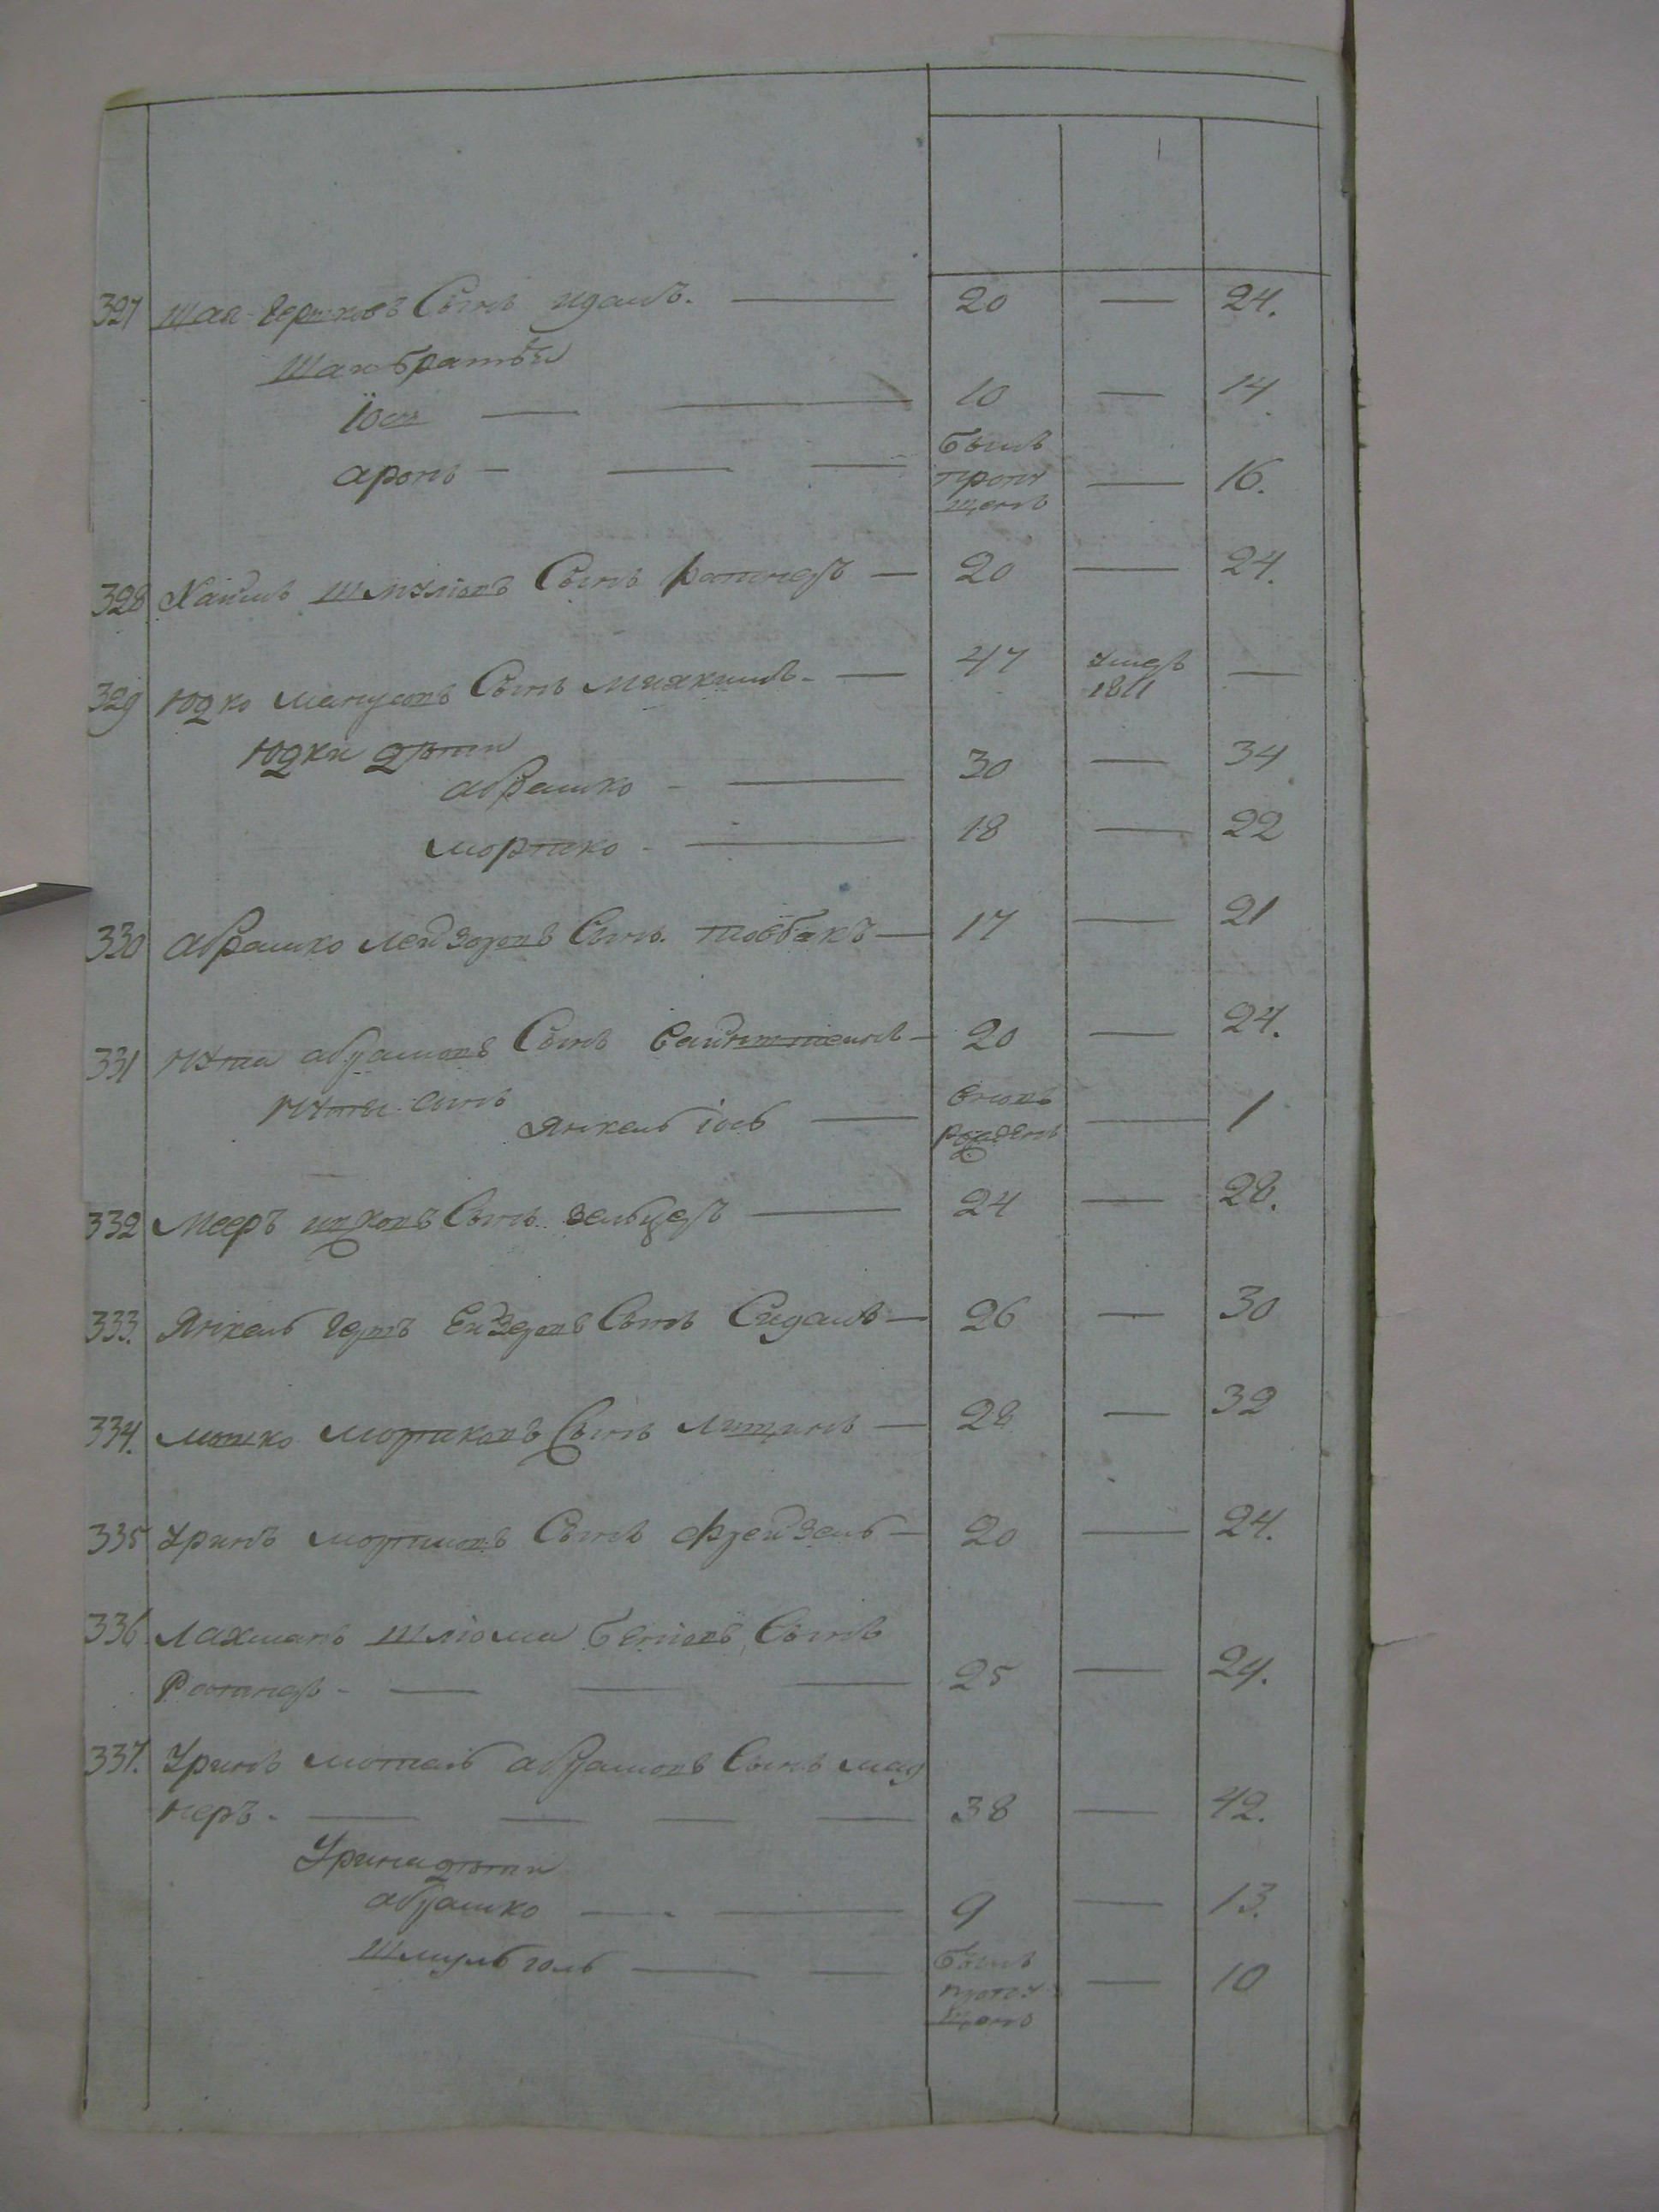 327 Шая Гершковъ Сынъ идамъ. — 20 — 24.
Шаи братья
Іось — — 10 — 14.
аронъ — — — былъ пропущенъ — 16.
328 Хаимъ Шмуліовъ Сынъ — 20 — 24.
329 Юдко манусовъ Сынъ — 47 умеръ 1811 —
Юдки дѣти
абрамко — 30 — 34
моршко — 18 — 22
330 абрамко лейзоровъ Сынъ — 17 — 21
331 Нута абрамовъ Сынъ Вайнштеинъ — 20 — 24.
Нуты сынъ
Янкель іось — вновь рожденъ — 1
332 Мееръ ицховъ Сынъ зельцеръ — 24 — 28.
333. Янкель Гершъ Сынъ Сидамъ — 26 — 30
334. мошко мортковъ Сынъ — 28 — 32
335 Уринъ Сынъ Фрейзель — 20 — 24.
336 Лахманъ Шліома Беніовъ Сынъ
— — — 25 — 29.
337. Уринъ мотель абрамовъ Сынъ мад
неръ — — — — 38 — 42.
Урина дѣти
абрамко — — 9 — 13.
Шмуль — — былъ пропущенъ — 10